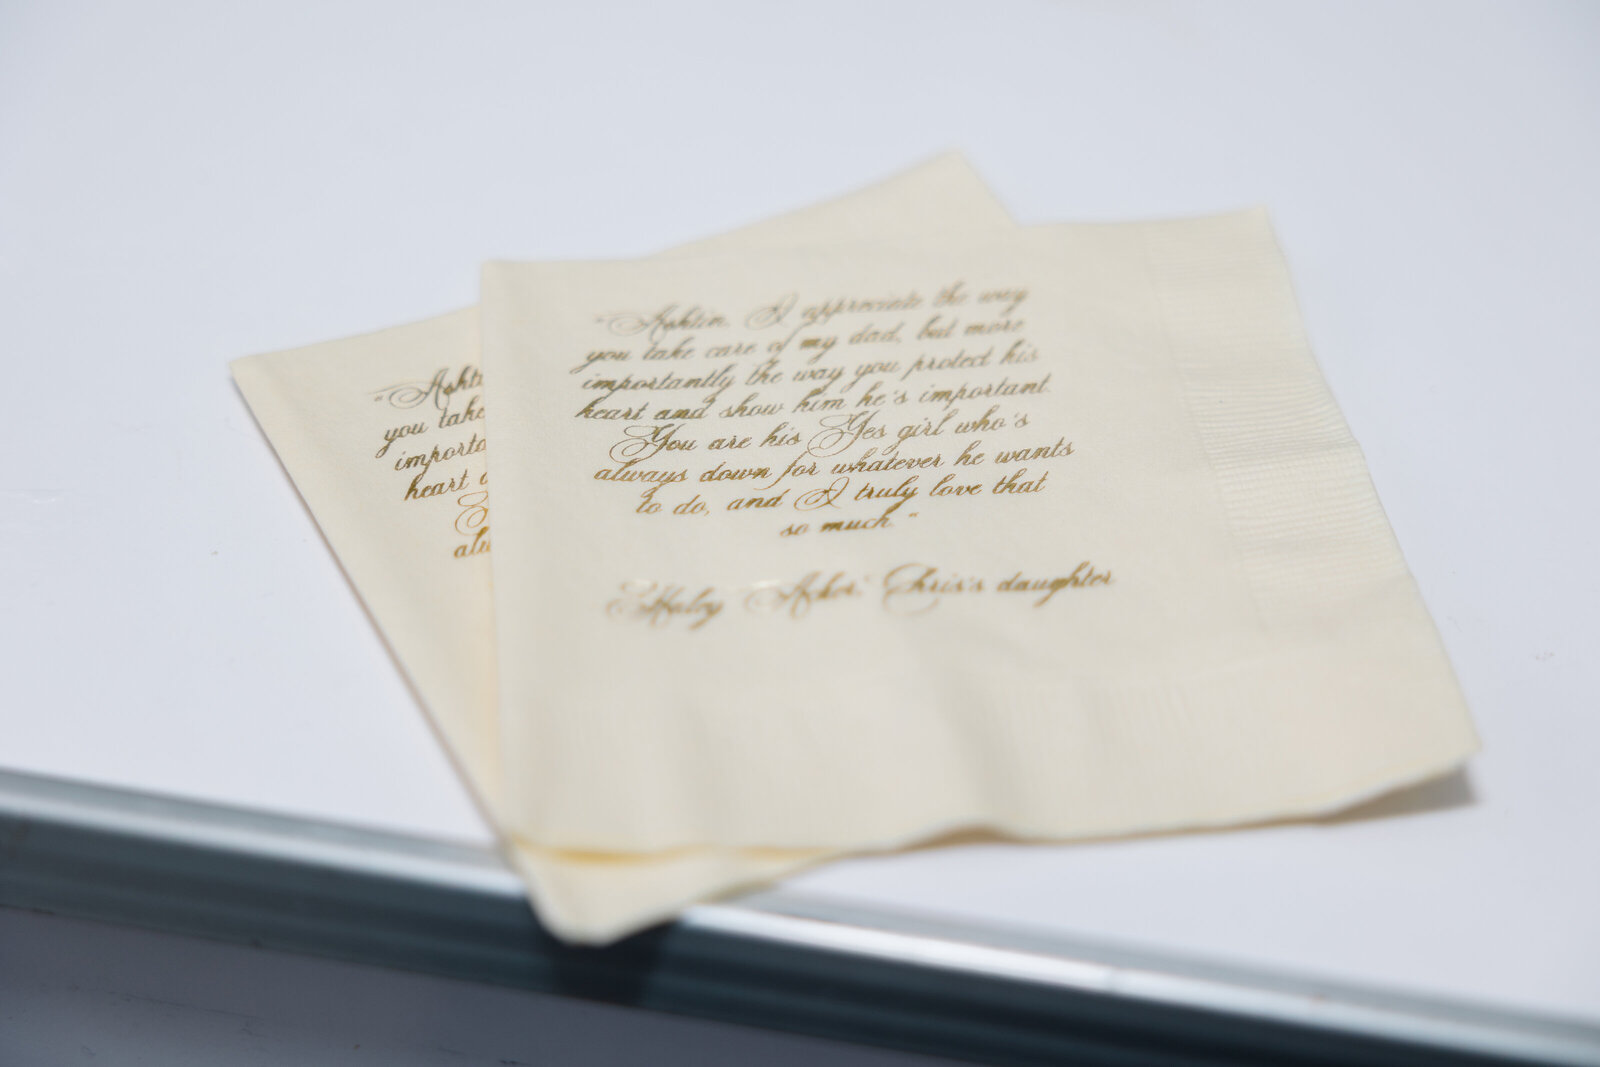 "Ashtin, I appreciate the way
you take care of my dad, but more
importantly the way you protect his
heart and show him he's important.
You are his Yes girl who's
always down for whatever he wants
to do, and I truly love that
so much."
Haley Chris's daughter
"Ashti
you take
importa
heart a
alw